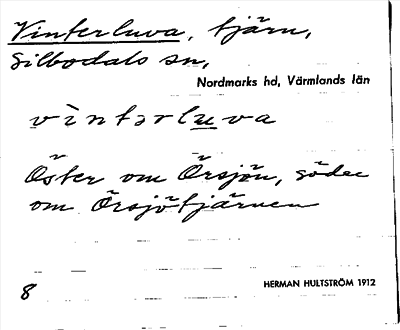 Vinterluva, tjärn,
Silbodals sn,
Nordmarks hd, Värmlands län
vìntərlu̲va
Öster om Örsjön, söder
om Örsjötjärnen
8
HERMAN HULTSTRÖM 1912